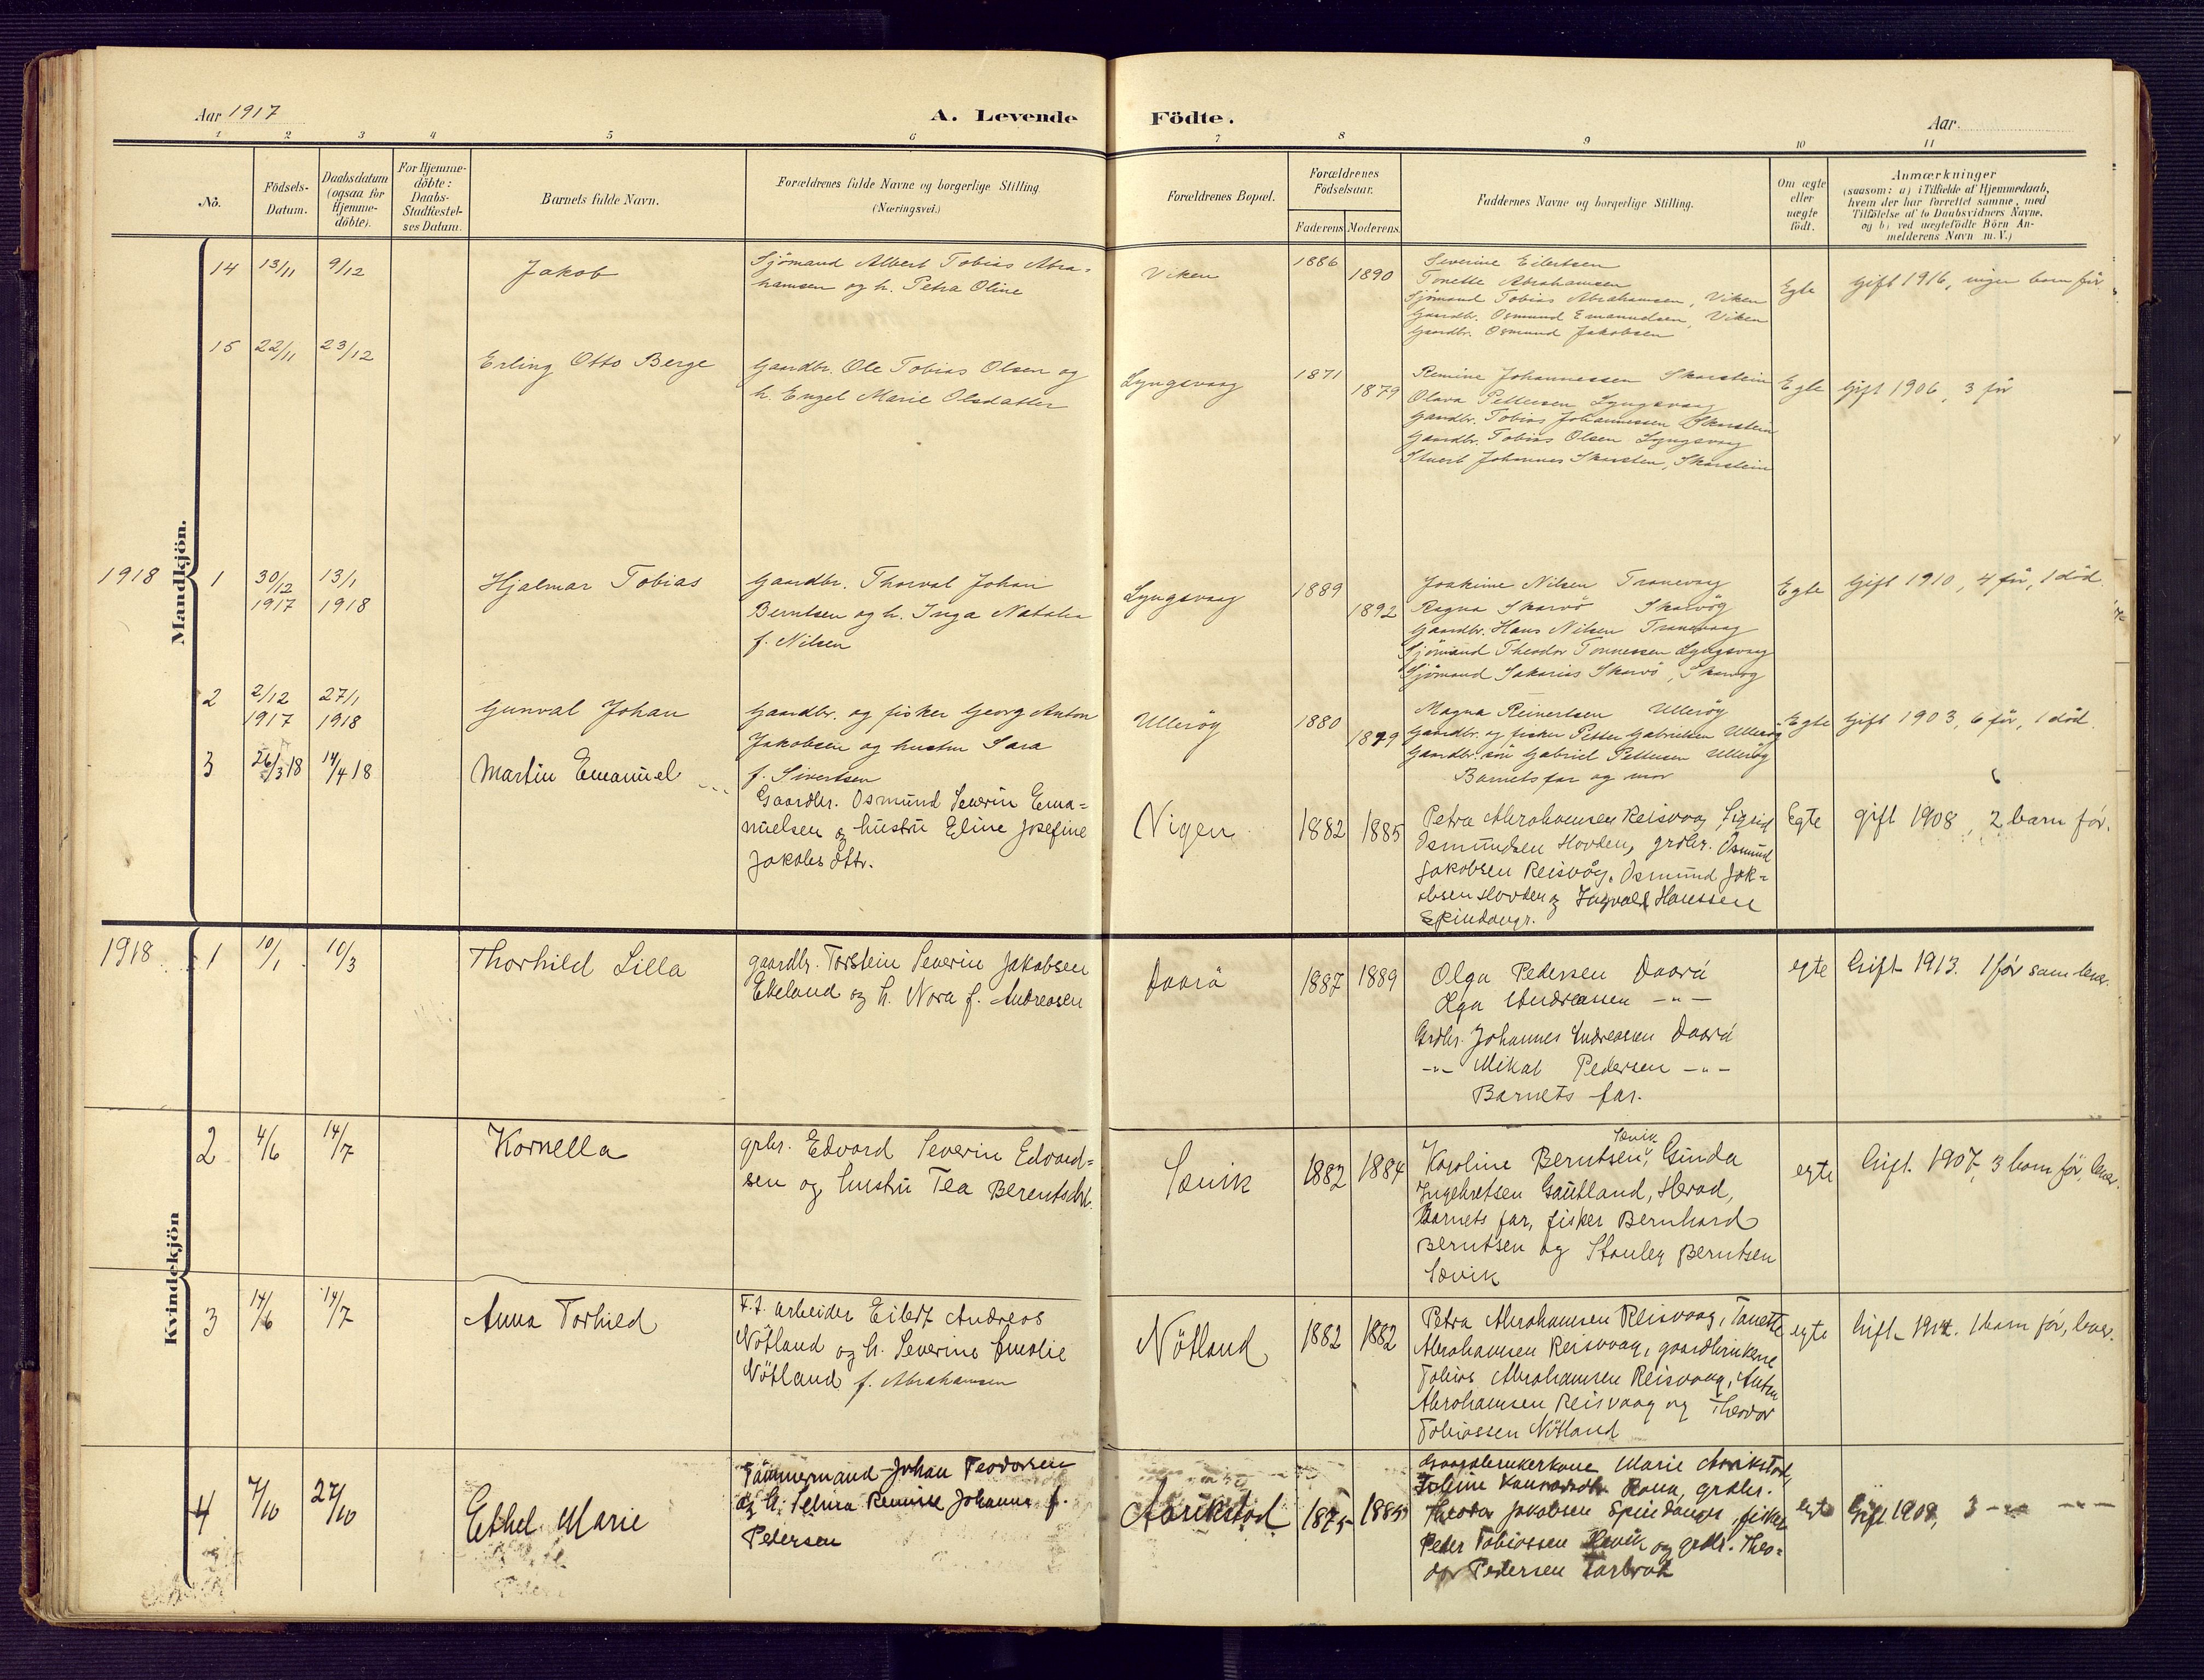 Aar 1917
A. Levende
Födte.
Aar.
1 2 3 4 5 6 7 8 9 10 11
No.
Födsels-
Datum.
Daabsdatum
(ogsaa for
Hjemme-
döbte).
For Hjemme-
döbte:
Daabs-
Stadfæstel-
ses Datum.
Barnets fulde Navn.
Forældrenes fulde Navne og borgerlige Stilling
(Næringsvei.)
Forældrenes Bopæl.
Forældrenes
Födselsaar.
Faderens Moderens
Faddernes Navne og borgerlige Stilling.
Om ægte
eller
uægte
födt.
Anmærkninger
(saasom: a) i Tilfælde af Hjemmedaab,
hvem der har forrettet samme, med
Tilföielse af to Daabsvidners Navne.
og b) ved uægtefödte Börn An-
melderens Navn m. V.)
Mandkjön.
14 13/11 9/12
Jakob
Sjömand Albert Tobias Abra-
hamsen og h. Petra Oline
Viken
1886
1890
Severine Eilertsen
Tonette Abrahamsen
Sjömand Tobias Abrahamsen, Viken
Gaardbr. Osmund Emanuelsen, Viken
Gaardbr. Osmund Jakobsen
Egte
Gift 1916, ingen barn för
15 22/11 23/12
Erling Otto Berge
Gaardbr. Ole Tobias Olsen og
h. Engel Marie Olsdatter
Lyngsvaag
1871
1879
Remine Johannessen Skarstein
Olava Pettersen Lyngsvaag
Gaardbr. Tobias Johannessen Skarstein
Gaardbr. Tobias Olsen Lyngsvaag
Stuert Johannes Skarsten, Skarstein
Egte
Gift 1906, 3 för
1918
1 30/12 13/1
1917 1918
Hjalmar Tobias
Gaardbr. Thorval Johan
Berntsen og h. Inga Natalia
f. Nilsen
Lyngsvaag
1889
1892
Joakime Nilsen Tranevag
Ragna Skarvö Skarvög
Gaardbr. Hans Nilsen Tranevaag
Sjömand Theodor Tönnessen Lyngsvaag
Sjömand Sakarias Skarvö, Skarvög
Egte
Gift 1910, 4 för, 1 död.
2 2/12 27/1
1917 1918
Gunval Johan
Gaardbr. og fisker Georg Anton
Jakobsen og hustru Sara
f. Sivertsen
Ulleröy
1880
1879
Magna Reinertsen Ulleröy
Gaardbr. og fisker Petter Gabrielsen Ulleröy
Gaardbr. sön Gabriel Pettersen Ulleröy
Barnets far og mor
Egte
Gift 1903, 6 för, 1 död.
3 26/3 18 14/4 18
Martin Emanuel
Gaardbr. Osmund Severin Ema=
nuelsen og hustru Eline Josefine
Jakobs dttr.
Vigen
1882 1885
Petra Abrahamsen Reisvaag, Sigrid
Osmundsen Hovden, grdbr. Osmund
Jakobsen Reisvåg, Osmund Jak=
obsen Hovden og Ingvald Hanssen
Spindangr.
Egte
gift 1908, 2 barn før.
Kvindekjön
1918
1 10/1 10/3
Thorhild Lilla
gaardbr. Torstein Severin Jakobsen
Ekeland og h. Nora f. Andreasen
Daarå
1887 1889
Olga Pedersen Daarå
Olga Andreassen -"-
Grdbr. Johannes Andreasen Daarå
-"- Mikal Pedersen -"-
Barnets far.
egte
Gift 1913. 1 før som lever.
2 4/6 14/7
Kornella
grbr. Edvard Severin Edvard=
sen og hustru Tea Berentsdtr.
Sævik
1882 1884
Sævik
Karoline Berntsen, Ginda
Ingebretsen Gautland, Herad,
Barnets far, fisker Bernhard
Berntsen og Stanley Berntsen
Sævik
egte
Gift 1907, 3 barn før, lever.
3 14/6 14/7
Anna Torhild
F.t. arbeider Eilert Andreas
Nötland og h. Severine Amalie
Nötland f. Abrahamsen
Nötland
1882 1882
Petra Abrahamsen Reisvaag, Tanette
Abrahamsen Reisvaag, gaardbrukerne
Tobias Abrahamsen Reisvaag, Anton
Abrahamsen Reisvaag og Theodor
Tobiassen Nötland
egte
Gift 1914. 1 barn før, lever.
4 7/10 27/10
Ethel Marie
Tømmermand Johan Teodorsen
og h. Remine Johanne f.
Petersen
1875 1885
Gaardbrukerkone Marie
Theodor Jakobsen Spindanger, fisker
Peder Tobiassen og grdbr. Theo=
dor Pedersen
egte
Gift 1909, 3 -"- -"-